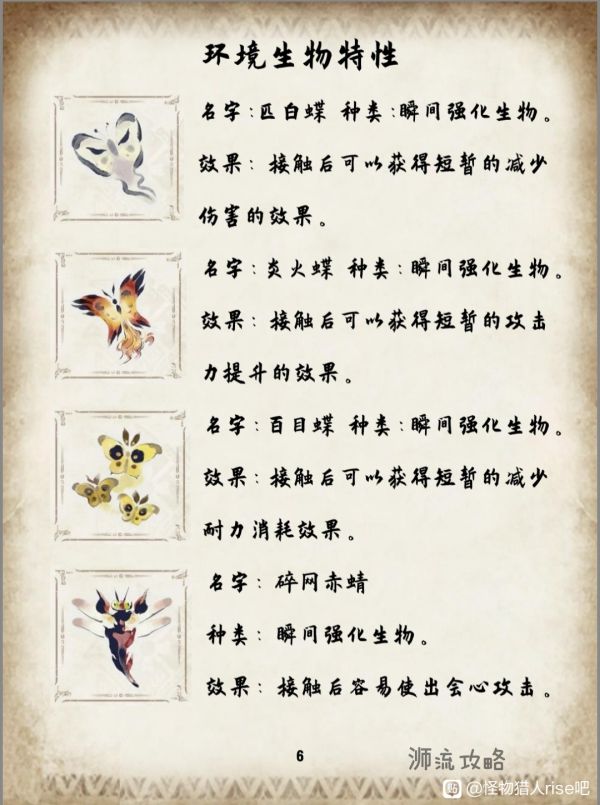 环境生物特性
名字:匹白蝶 种类:瞬间强化生物。
效果: 接触后可以获得短暂的减少
伤害的效果。
名字:炎火蝶 种类:瞬间强化生物。
效果: 接触后可以获得短暂的攻击
力提升的效果。
名字:百目蝶 种类:瞬间强化生物。
效果: 接触后可以获得短暂的减少
耐力消耗效果。
名字: 碎网赤蜻
种类: 瞬间强化生物。
效果: 接触后容易使出会心攻击。
6
浉流攻略
贴 @怪物猎人rise吧